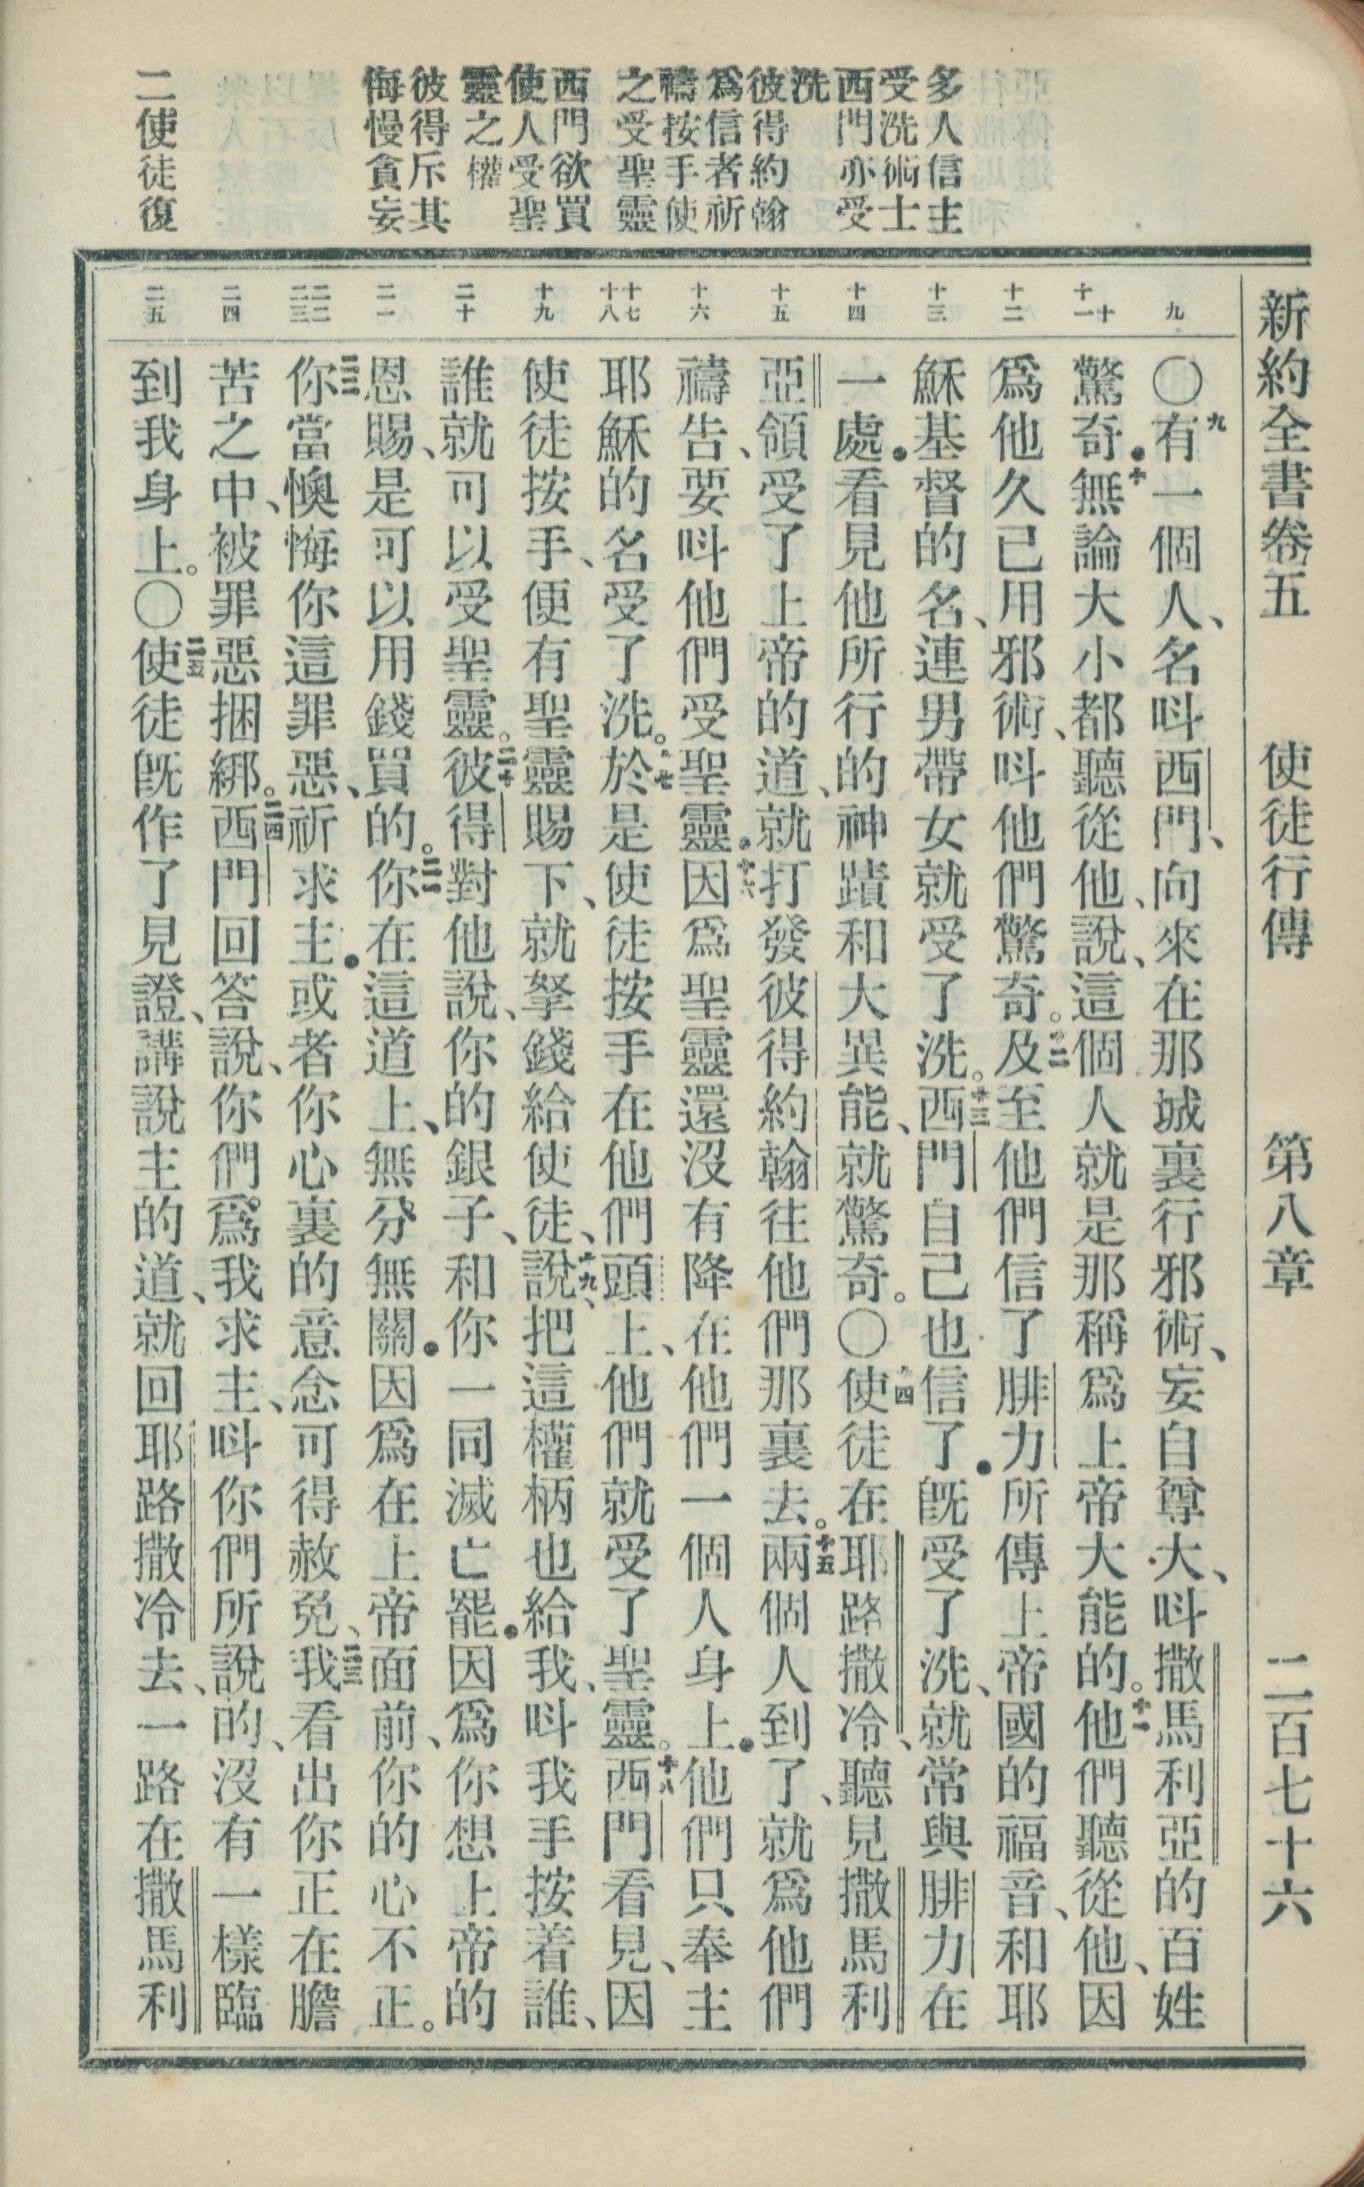 新約全書卷五　使徒行傳　第八章　二百七十六
多人信主
受洗術士
西門亦受
洗
彼得約翰
爲信者祈
禱按手使
之受聖靈
西門欲買
使人受聖
靈之權
彼得斥其
悔慢貪妄
二使徒復
九
十
十一
十二
十三
十四
十五
十六
十七
十八
十九
二十
二一
二二
二三
二四
二五
〇九有一個人、名呌西門、向來在那城裏行邪術、妄自尊大、呌撒馬利亞的百姓
驚奇．十無論大小都聽從他、說、這個人就是那稱爲上帝大能的。十一他們聽從他、因
爲他久已用邪術、呌他們驚奇。十二及至他們信了腓力所傳上帝國的福音、和耶
穌基督的名、連男帶女就受了洗。十三西門自己也信了．旣受了洗、就常與腓力在
一處．看見他所行的神蹟和大異能、就驚奇。〇十四使徒在耶路撒冷、聽見撒馬利
亞領受了上帝的道、就打發彼得約翰往他們那裏去。十五兩個人到了、就爲他們
禱告、要呌他們受聖靈．十六因爲聖靈還沒有降在他們一個人身上．他們只奉主
耶穌的名受了洗。十七於是使徒按手在他們頭上、他們就受了聖靈。十八西門看見、因
使徒按手、便有聖靈賜下、就拏錢給使徒、十九說、把這權柄也給我、呌我手按着誰、
誰就可以受聖靈。二十彼得對他說、你的銀子、和你一同滅亡罷．因爲你想上帝的
恩賜、是可以用錢買的。二一你在這道上、無分無關．因爲在上帝面前、你的心不正。
二二你當懊悔你這罪惡、祈求主．或者你心裏的意念可得赦免、二三我看出你正在膽
苦之中、被罪惡捆綁。二四西門回答說、你們爲我求主、呌你們所說的、沒有一樣臨
到我身上。〇二五使徒旣作了見證、講說主的道、就回耶路撒冷去、一路在撒馬利